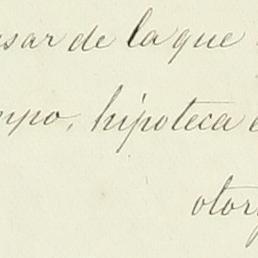 usar de la que
mpo, hipoteca e
otor